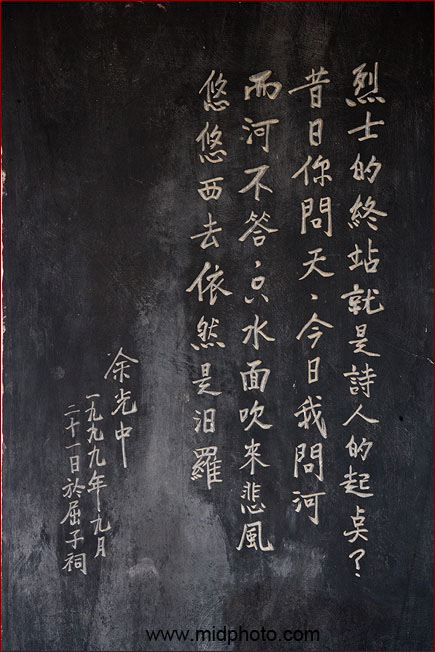 烈士的終站就是詩人的起奌？
昔日你問天，今日我問河
而河不答，只水面吹來悲風
悠悠西去依然是汨羅
余光中
一九九九年九月
二十一日於屈子祠
www.midphoto.com